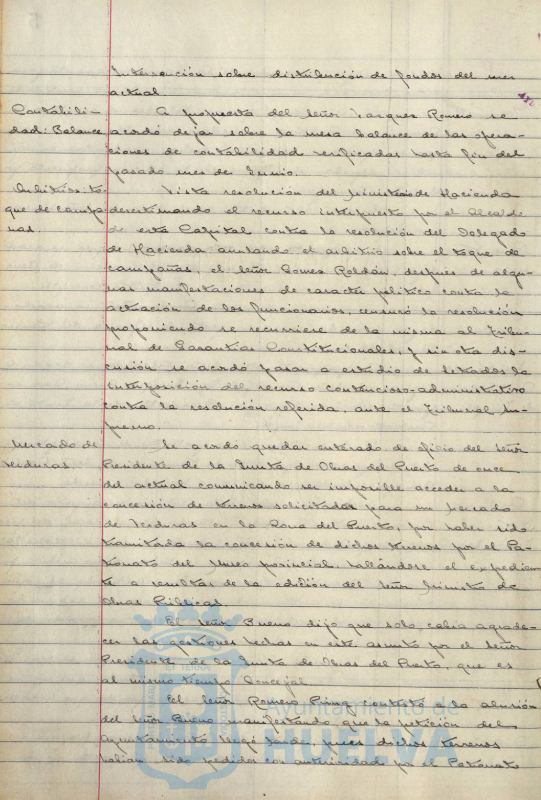 Intervención sobre distribución de fondos del mes
actual.
Contabili-
dad: Balance
A propuesta del Señor Vazquez Romero se
acordó dejar sobre la mesa balance de las opera-
ciones de contabilidad verificadas hasta fin del
pasado mes de Junio.
Arbitrios: to-
que de campa-
nas.
Vista resolución del Ministerio de Hacienda
desestimando el recurso interpuesto por el Alcalde
de esta Capital contra la resolución del Delegado
de Hacienda anulando el arbitrio sobre el toque de
campañas, el Señor Gomez Roldán, después de algu-
nas manifestaciones de caracter politico contra la
actuación de los funcionarios, censuró la resolución
proponiendo se recurriese de la misma al Tribu-
nal de Garantias Constitucionales, y sin otra dis-
cusión se acordó pasar a estudio de Letrados la
interposición del recurso contencioso-administrativo
contra la resolución referida, ante el Tribunal Su-
premo.
Mercado de
verduras.
Se acordó quedar enterado de oficio del Señor
Presidente de la Junta de Obras del Puerto de once
del actual comunicando ser imposible acceder a la
concesión de terrenos solicitados para un mercado
de Verduras en la Zona del Puerto, por haber sido
tramitada la concesión de dichos terrenos por el Pa-
tronato del Museo provincial, hallándose el expedien-
te a resultas de la edición del Señor Ministro de
Obras Públicas.
El Señor Bueno dijo que solo cabia agrade-
cer las gestiones hechas en este asunto por el Señor
Presidente de la Junta de Obras del Puerto, que es
al mismo tiempo Concejal.
El Señor Romero contestó a la alusión
del Señor Bueno manifestando que la petición del
Ayuntamiento llegó tarde, pues dichos terrenos
habian sido pedidos con anterioridad por el Patronato
Ayuntamiento de
HUELVA